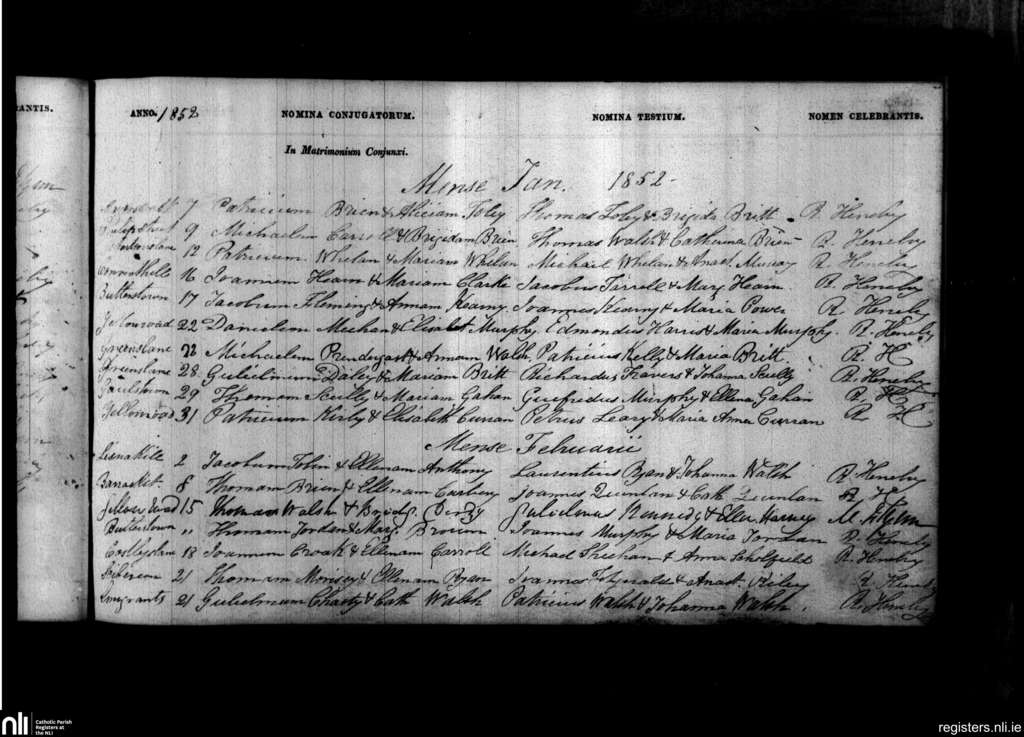 ANTIS.
ANNO. 1852 NOMINA CONJUGATORUM. NOMINA TESTIUM. NOMEN CELEBRANTIS.
In Matrimonium Conjunxi.
Mense Jan. 1852
7 Patricium Brien & Aliciam Foley Thomas Foley & Brigida Britt R. Heneby
9 Michaelem Carroll & Brigidam Brien Thomas Walsh & Catherina Brien R. Heneby
12 Patricium Whelan & Mariam Whelan Michael Whelan & Anast. Murray R. Heneby
16 Joannem Hearn & Mariam Clarke Jacobus Farrell & Mary Hearn R. Heneby
Butlerstown 17 Jacobum Fleming & Annam Kearny Joannes Kearny & Maria Power R. Heneby
Yellowroad 22 Danielem Mechan & Elisabet Murphy Edmondus Harris & Maria Murphy R. Heneby
Greenslane 22 Michaelem Prendergast & Annam Walsh Patricius Kelly & Maria Britt R. H
Greenslane 28 Gulielmum Daley & Mariam Britt Richardus Travers & Johanna Scully R. Heneby
29 Thomam Scully & Mariam Gahan Murphy & Ellena Gahan R. H
Yellowroad 31 Patricium Kirby & Elisabeth Curran Petrus Leary & Maria Anna Curran R H
Mense Februarii
Lisnakill 2 Jacobum Tobin & Ellenam Anthony Laurentius Ryan & Johanna Walsh R. Heneby
8 Thomam Brien & Ellenam Joannes Quinlan & Cath Quinlan R. H
Yellow Road 15 Thomam Walsh & Brigid. Gulielmus Kennedy & Ellen Harney M. Flynn
Butlerstown " Thomam Jordan & Mary Joannes Murphy & Maria Jordan R. Heneby
18 Joannem Croak & Ellenam Carroll Michael Sheehan & Anna R. Heneby
21 Thomam Morissy & Ellenam Ryan Joannes & Anast. R. Heneby
Emigrants 21 Gulielmum & Cath Walsh Patricius Walsh & Johanna Walsh R. Heneby
nli Catholic Parish
Registers at
the NLI
registers.nli.ie